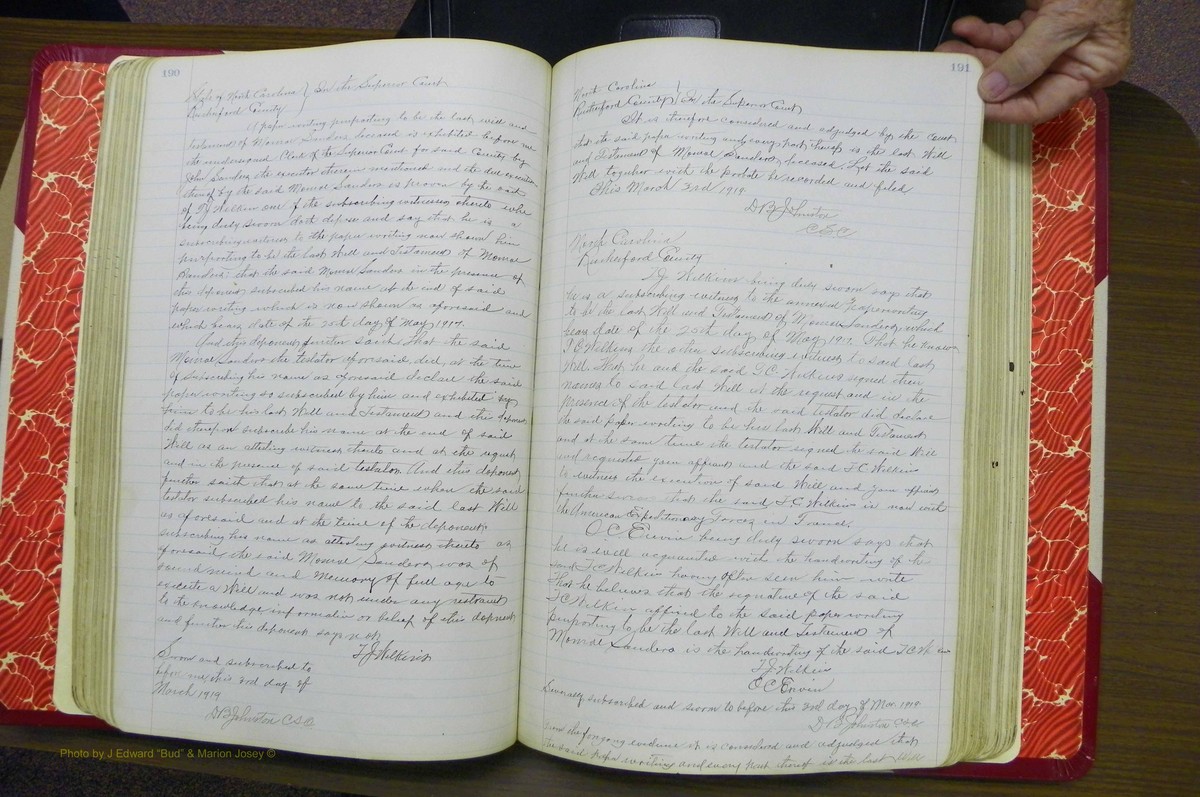 190
State of North Carolina } In the Superior Court
Rutherford County }
A paper writing purporting to be the last will and
testament of Monroe Sanders deceased is exhibited before me
the undersigned Clerk of the Superior Court for said County by
John Sanders the executor therein mentioned and the due execution
thereof by the said Monroe Sanders is proven by the oath
of T J Wilkins one of the subscribing witnesses thereto who
being duly sworn doth depose and say that he is a
subscribing witness to the paper writing now shown him
purporting to be the last Will and Testament of Monroe
Sanders; that the said Monroe Sanders in the presence of
this deponent subscribed his name at the end of said
paper writing which is now shown as aforesaid and
which bears date of the 20th day of May 1917.
And this deponent further saith That the said
Monroe Sanders the testator aforesaid did at the time
of subscribing his name as aforesaid declare the said
paper writing so subscribed by him and exhibited
to be his last Will and Testament and this deponent
did thereupon subscribe his name at the end of said
Will as an attesting witness thereto and at the request
and in the presence of said testator. And this deponent
further saith that at the same time when the said
testator subscribed his name to the said last Will
as aforesaid and at the time of the deponent
subscribing his name as attesting witness thereto as
aforesaid the said Monroe Sanders was of
sound mind and memory of full age to
execute a Will and was not under any restraint
to the knowledge information or belief of this deponent
and further this deponent says not
T J Wilkins
Sworn and subscribed to
before me this 3rd day of
March 1919
D B Johnston CSC
191
North Carolina }
Rutherford County } In the Superior Court
It is therefore considered and adjudged by the Court
that the said paper writing and every part thereof is the last Will
and Testament of Monroe Sanders, deceased. Let the said
Will together with the probate be recorded and filed
This March 3rd 1919
D B Johnston
CSC
North Carolina
Rutherford County
T J Wilkins being duly sworn says that
he is a subscribing witness to the annexed paper writing
to be the last Will and Testament of Monroe Sanders which
bears date of the 20th day of May 1917. That he knows
T C Wilkins the other subscribing witness to said last
Will. That he and the said T. C. Wilkins signed their
names to said last Will at the request and in the
presence of the testator and the said testator did declare
the said paper writing to be his last Will and Testament
and at the same time the testator signed the said Will
and requested your affiant and the said T C Wilkins
to witness the execution of said Will and your affiant
further swears that the said T. C Wilkins is now with
the American Expeditionary Forces in France.
O C Erwin being duly sworn says that
he is well acquainted with the handwriting of the
said T. C Wilkins having often seen him write
That he believes that the signature of the said
T C Wilkins affixed to the said paper writing
purporting to be the last Will and Testament of
Monroe Sanders is the handwriting of the said T C Wilkins
T J Wilkins
O C Erwin
Severally subscribed and sworn to before this 3rd day of Mar 1919
D B Johnston CSC
From the foregoing evidence it is considered and adjudged that
the said paper writing and every part thereof is the last Will
Photo by J Edward "Bud" & Marion Josey ©